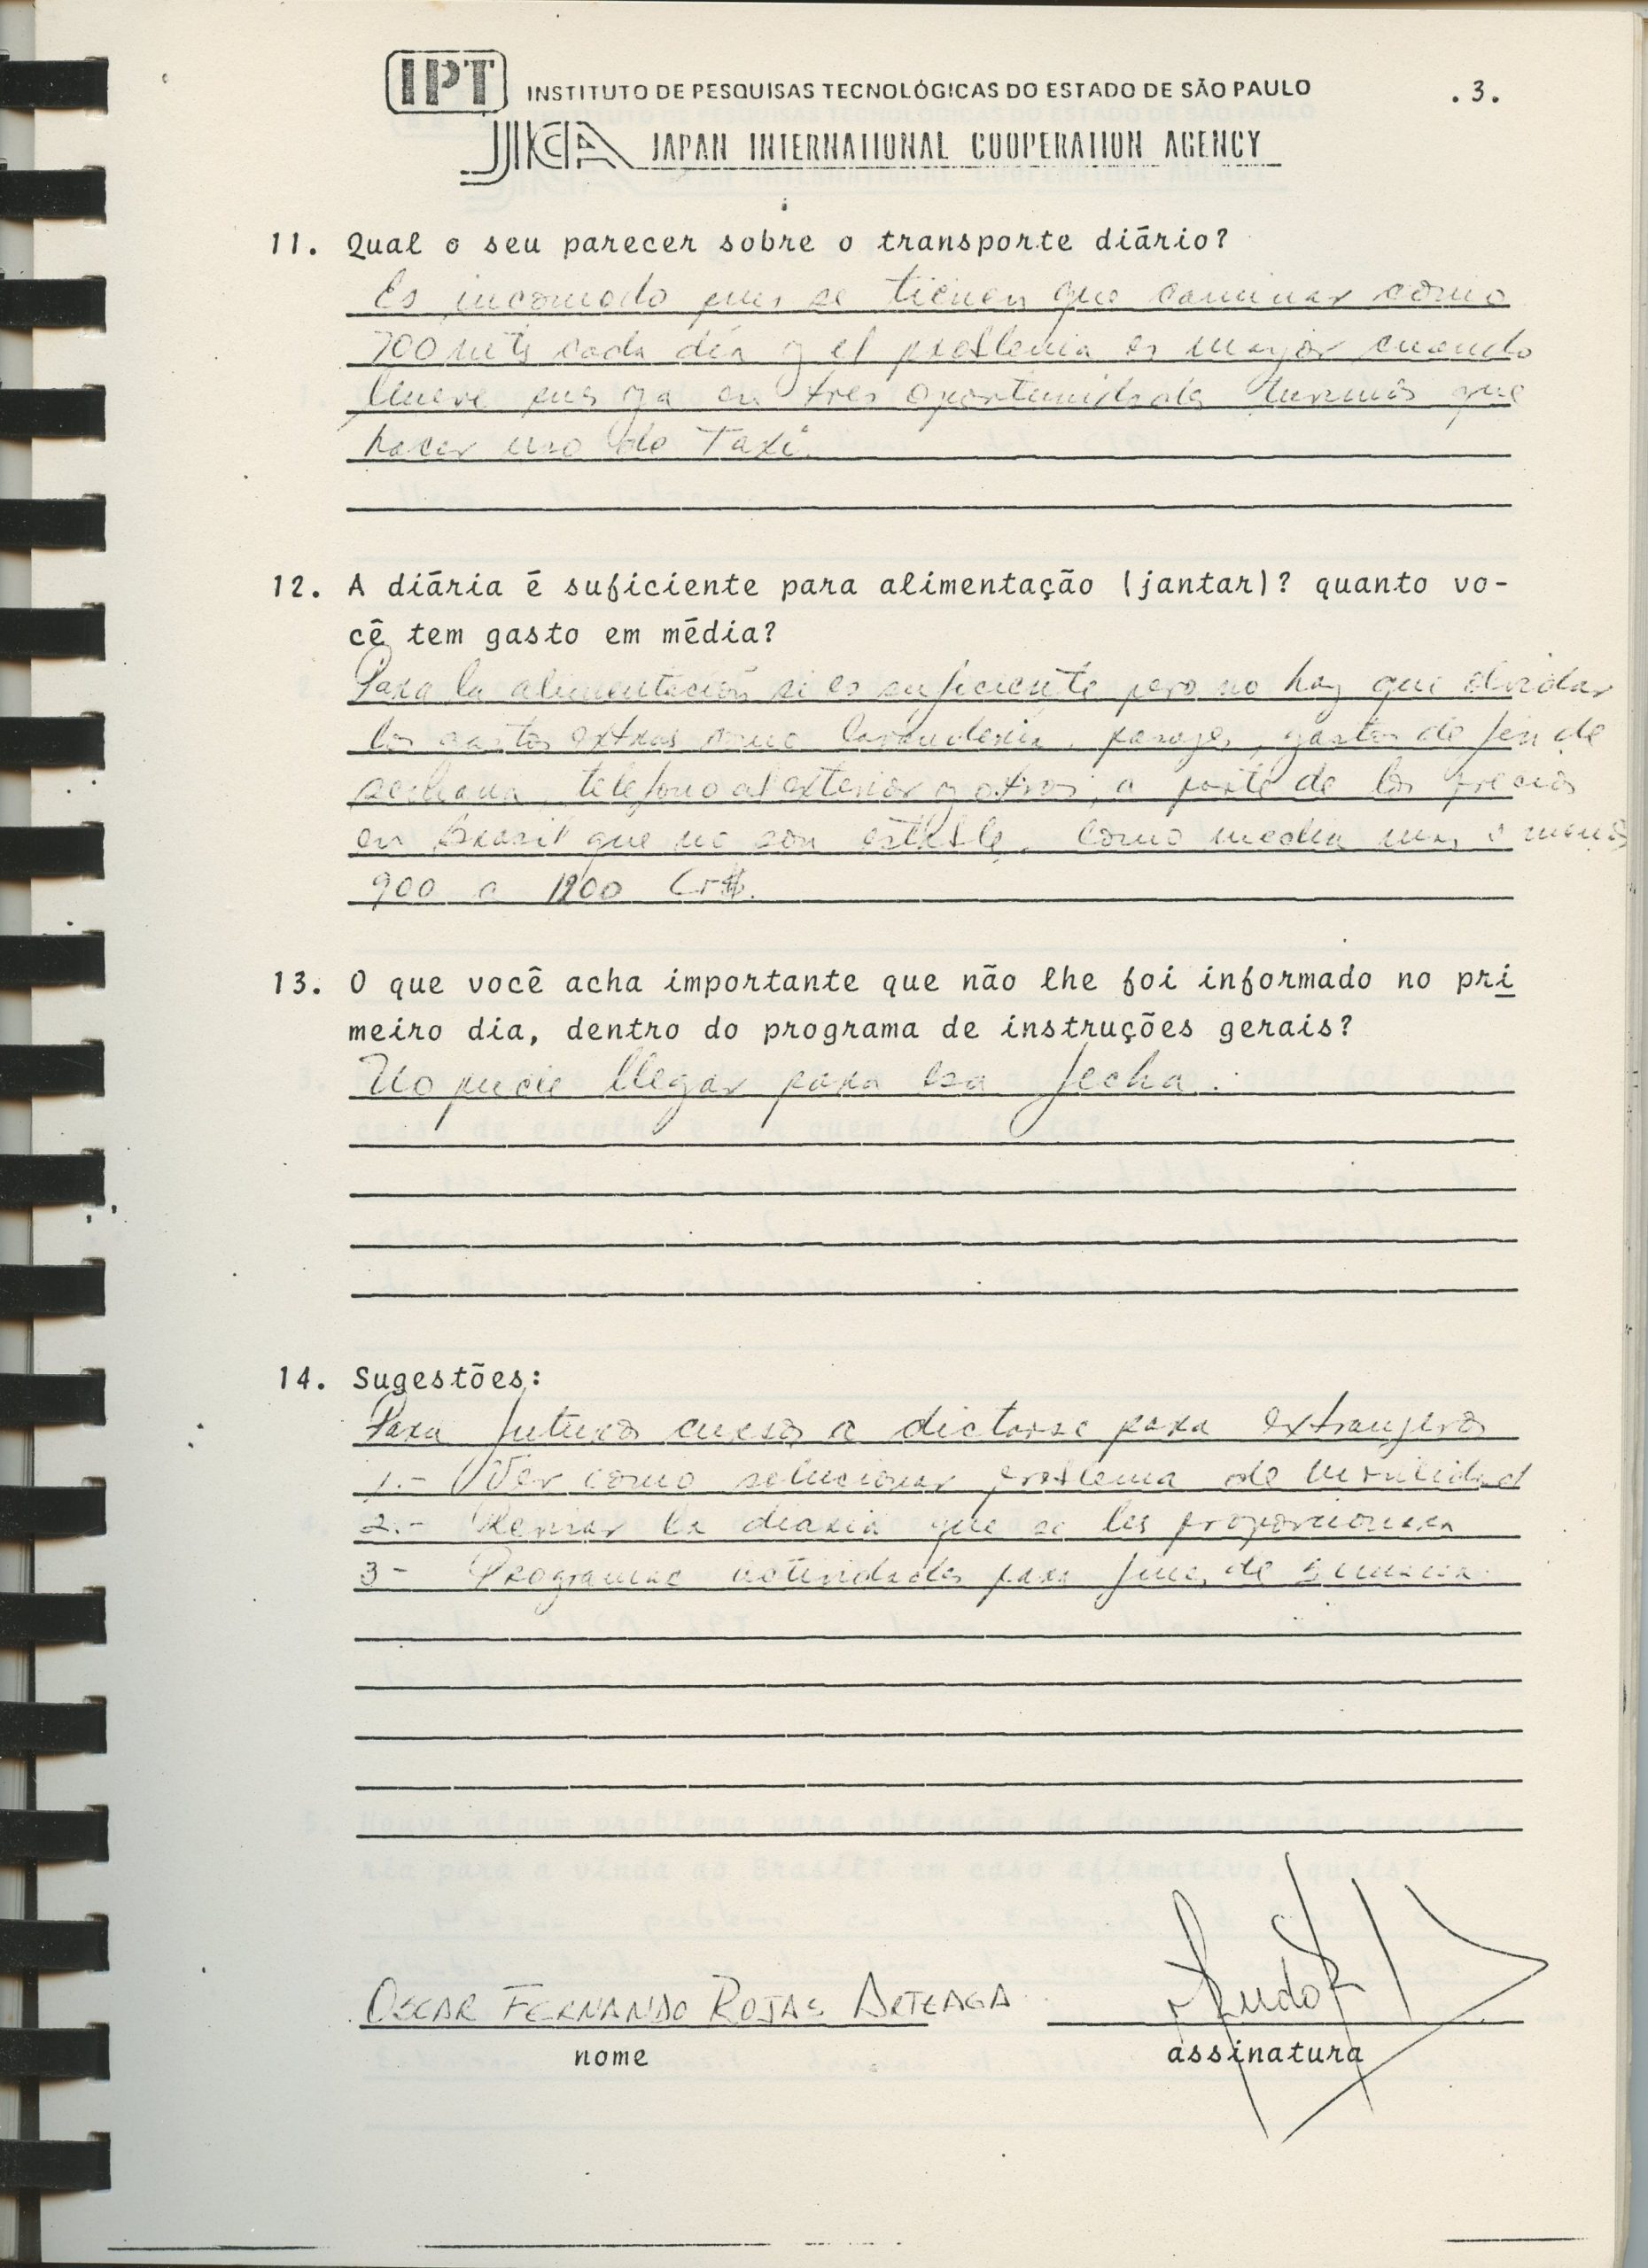 IPT INSTITUTO DE PESQUISAS TECNOLÓGICAS DO ESTADO DE SÃO PAULO .3.
JICA JAPAN INTERNATIONAL COOPERATION AGENCY
11. Qual o seu parecer sobre o transporte diário?
Es incomodo pues se tienen que caminar como
700 mts cada día y el problema es mayor cuando
llueve pues ya en tres oportunidades tuvimos que
hacer uso de Taxi.
12. A diária é suficiente para alimentação (jantar)? quanto vo-
cê tem gasto em média?
Para la alimentación si es suficiente pero no hay que olvidar
los gastos extras como lavanderia, pasajes, gastos de fin de
semana, telefono al exterior y otros, a parte de los precios
en Brasil que no son estable. Como media mas o menos
900 a 1200 Cr$.
13. O que você acha importante que não lhe foi informado no pri
meiro dia, dentro do programa de instruções gerais?
No pude llegar para esa fecha.
14. Sugestões:
Para futuros cursos a dictarse para extranjeros
1.- Ver como solucionar problema de movilidad
2.- Revisar la diaria que se les proporcionara
3- Programar actividades para fines de semana.
OSCAR FERNANDO ROJAS ARTEAGA
nome assinatura